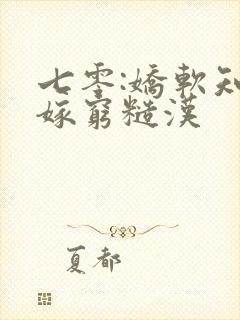 七零:嬌軟知
嫁窮糙漢
夏都